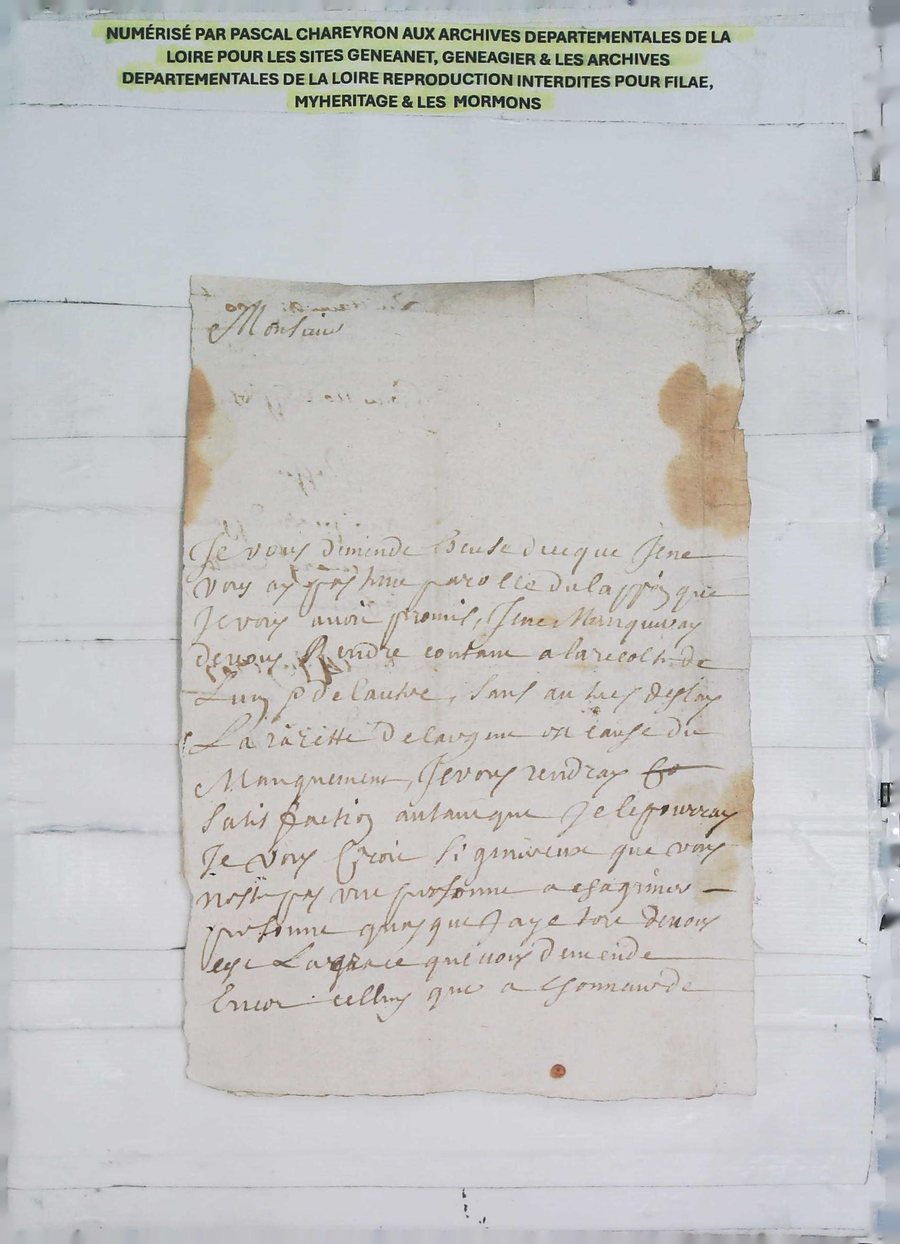 NUMÉRISÉ PAR PASCAL CHAREYRON AUX ARCHIVES DEPARTEMENTALES DE LA
LOIRE POUR LES SITES GENEANET, GENEAGIER & LES ARCHIVES
DEPARTEMENTALES DE LA LOIRE REPRODUCTION INTERDITES POUR FILAE,
MYHERITAGE & LES MORMONS
Monsieur
Je vous demende que Jene
vous ay pas tenu parolle que
Je vous avoit promis, Jene Manqueray
de vous Rendre contant a la recolte de
L'un & de l'autre, sans autres deslay
La rarette De largent est cause du
Manquement, Je vous rendray
satisfaction autant que Je le pourray
Je vous Croit si genereux que vous
nestes pas une personne a chagriner
personne quoyque Jaye tort de vous
La grace que vous demende
Encor celluy que a